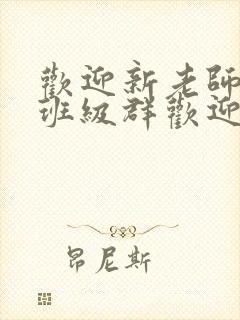 歡迎新老師
班級群歡迎
昂尼斯